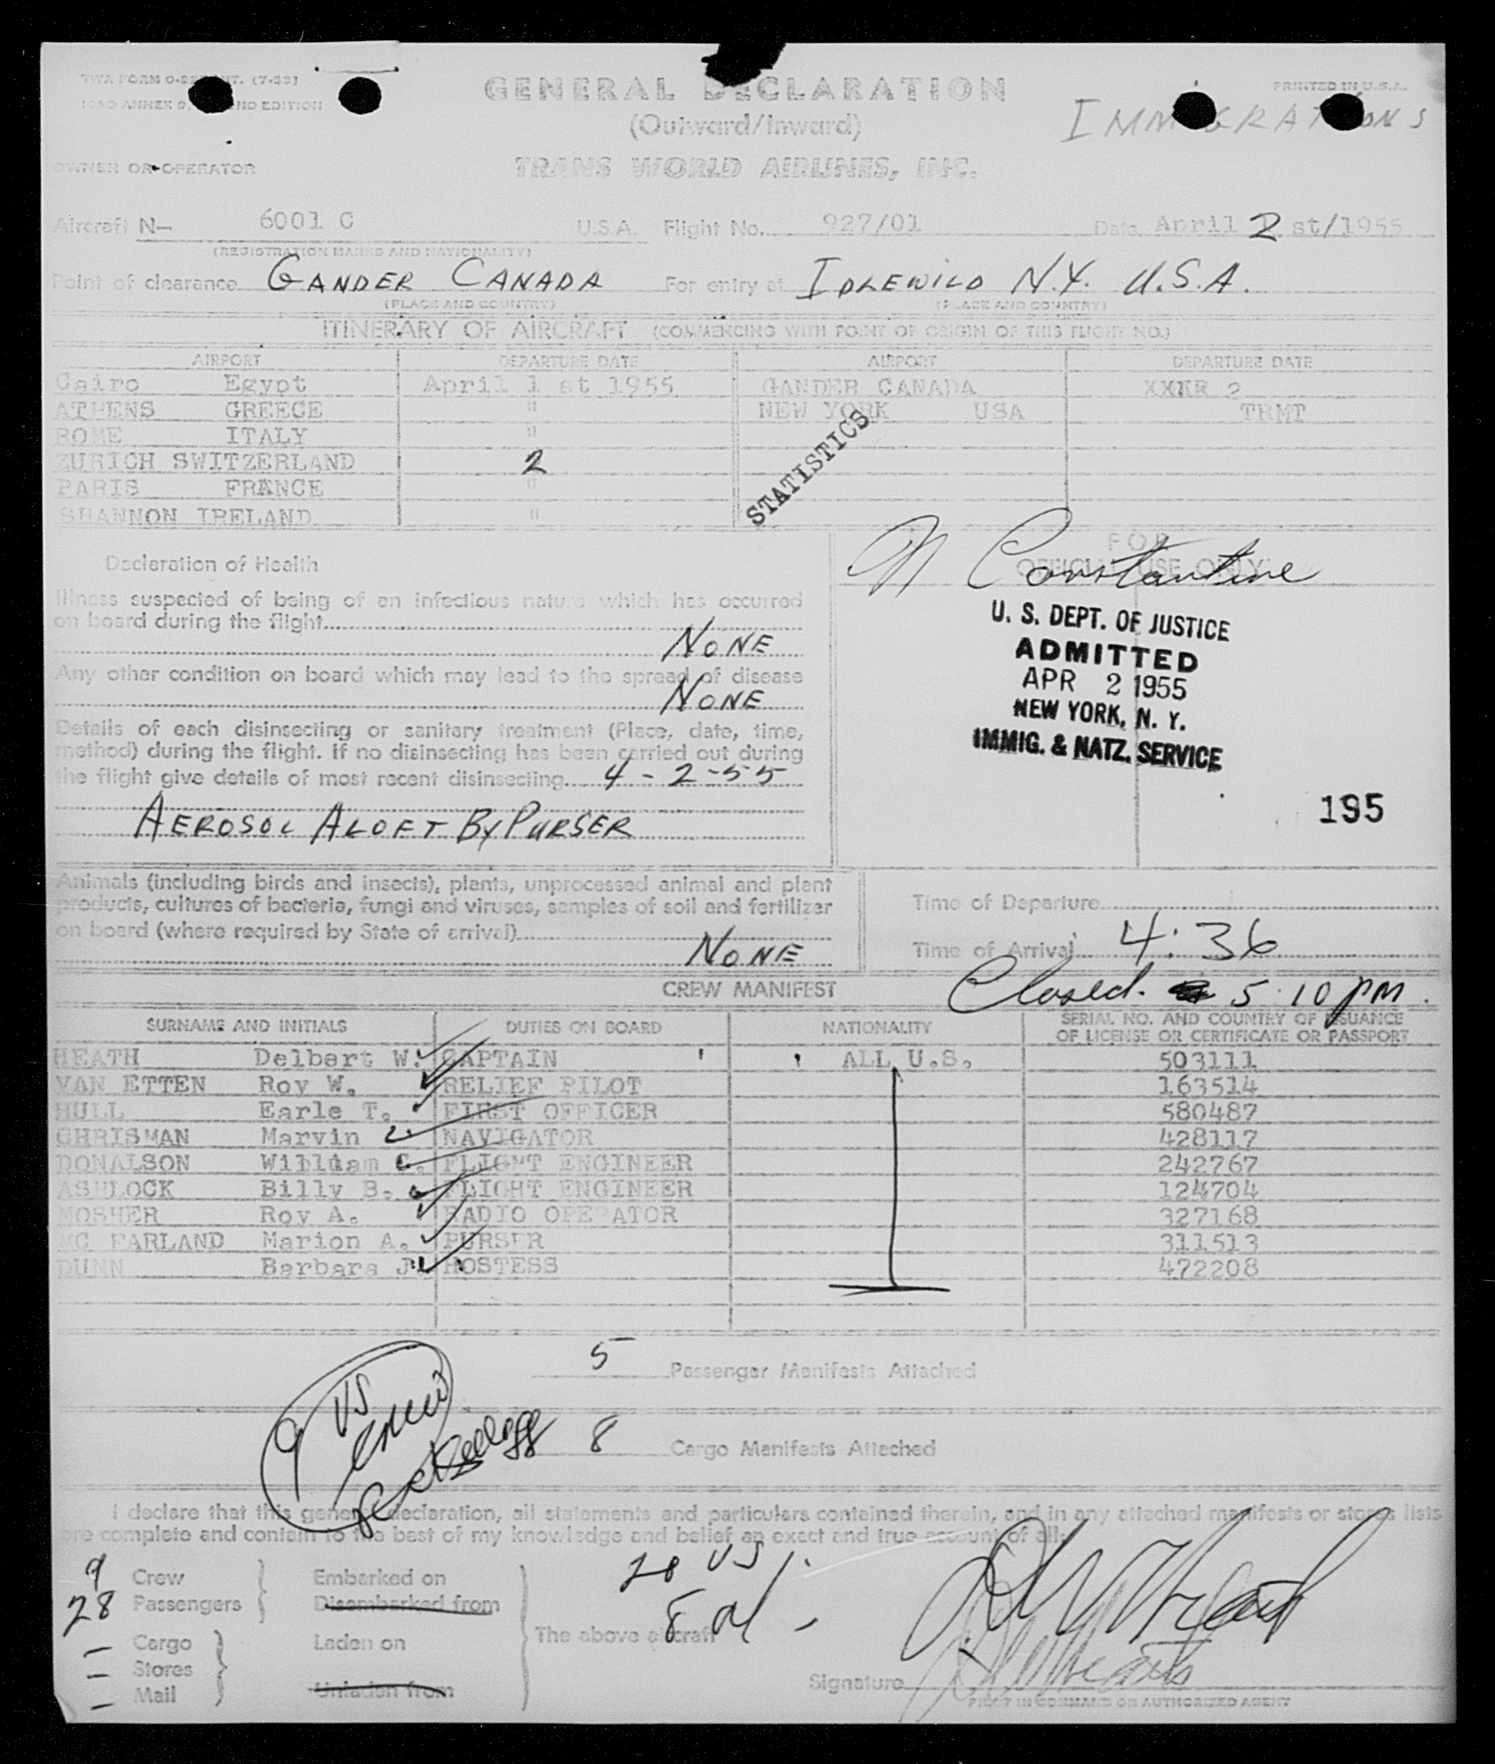 TWA FORM O-        INT. (7-53)
ICAO ANNEX 9,      ND EDITION
GENERAL DECLARATION
PRINTED IN U.S.A.
(Outward/Inward)
IMMIGRATIONS
OWNER OR OPERATOR
TRANS WORLD AIRLINES, INC.
Aircraft N- 6001 C U.S.A. Flight No. 927/01 Date April 2 st/1955
(REGISTRATION MARKS AND NATIONALITY)
Point of clearance GANDER CANADA For entry at IDLEWILD N.Y. U.S.A.
(PLACE AND COUNTRY) (PLACE AND COUNTRY)
ITINERARY OF AIRCRAFT (COMMENCING WITH POINT OF ORIGIN OF THIS FLIGHT NO.)
AIRPORT DEPARTURE DATE AIRPORT DEPARTURE DATE
Cairo Egypt April 1 st 1955 GANDER CANADA XXXR 2
ATHENS GREECE " NEW YORK USA TRMT
ROME ITALY "
ZURICH SWITZERLAND 2
PARIS FRANCE "
SHANNON IRELAND "
STATISTICS
FOR
OFFICIAL USE ONLY
N Constantine
U. S. DEPT. OF JUSTICE
ADMITTED
APR 2 1955
NEW YORK, N. Y.
IMMIG. & NATZ. SERVICE
195
Declaration of Health
Illness suspected of being of an infectious nature which has occurred
on board during the flight
NONE
Any other condition on board which may lead to the spread of disease
NONE
Details of each disinsecting or sanitary treatment (Place, date, time,
method) during the flight. If no disinsecting has been carried out during
the flight give details of most recent disinsecting 4-2-55
AEROSOL ALOFT BY PURSER
Animals (including birds and insects), plants, unprocessed animal and plant
products, cultures of bacteria, fungi and viruses, samples of soil and fertilizer
on board (where required by State of arrival)
NONE
Time of Departure
Time of Arrival 4:36
Closed. 5:10 pm.
CREW MANIFEST
SURNAME AND INITIALS DUTIES ON BOARD NATIONALITY SERIAL NO. AND COUNTRY OF ISSUANCE
OF LICENSE OR CERTIFICATE OR PASSPORT
HEATH Delbert W. CAPTAIN ALL U.S. 503111
VAN ETTEN Roy W. RELIEF PILOT 163514
HULL Earle T. FIRST OFFICER 580487
CHRISMAN Marvin L. NAVIGATOR 428117
DONALSON William C. FLIGHT ENGINEER 242767
ASHLOCK Billy B. FLIGHT ENGINEER 124704
MOSHER Roy A. RADIO OPERATOR 327168
MC FARLAND Marion A. PURSER 311513
DUNN Barbara J. HOSTESS 472208
5 Passenger Manifests Attached
9 US
crew
8 Cargo Manifests Attached
I declare that this general declaration, all statements and particulars contained therein, and in any attached manifests or stores lists
are complete and contain to the best of my knowledge and belief an exact and true account of all:
9 Crew Embarked on
28 Passengers Disembarked from
- Cargo Laden on
- Stores
- Mail Unladen from
The above aircraft
20 US
8 al
Signature D W Heath
PILOT IN COMMAND OR AUTHORIZED AGENT